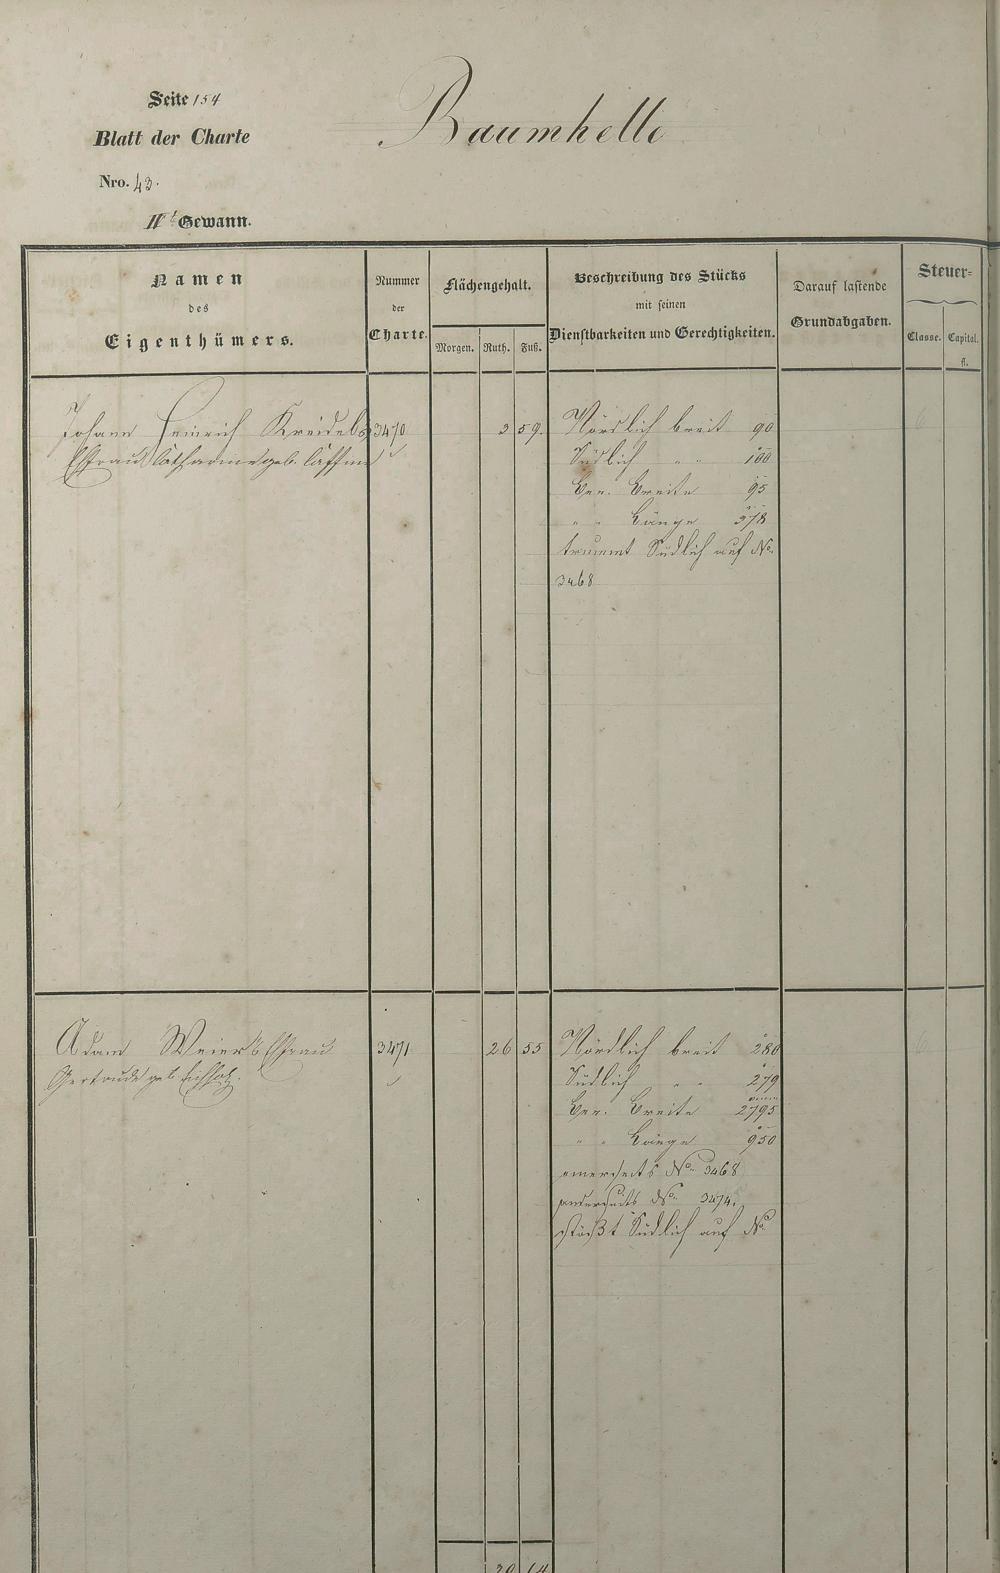 Seite 154
Baumhelle
Blatt der Charte
Nro. 43.
IIt Gewann.
Namen
des
Eigenthümers.
Nummer
der
Charte.
Flächengehalt.
Morgen. Ruth. Fuß.
Beschreibung des Stücks
mit seinen
Dienstbarkeiten und Gerechtigkeiten.
Darauf lastende
Grundabgaben.
Steuer-
Classe. Capital.
fl.
Johann Heinrich Kreidels 3470 3 59. Nördlich breit 90
Ehefrau Catharine geb.
Südlich " " 100
Ger. Breite 95
" " Länge 378
trummt Südlich auf No.
3468
Adam Weier's Ehefrau 3471 26 55 Nördlich breit 280
Gertrude geb. Eichholz.
Südlich " " 279
Ger. Breite 2795
" " Länge 950
einerseits No. 3468
anderseits No. 3474.
stößt Südlich auf No.